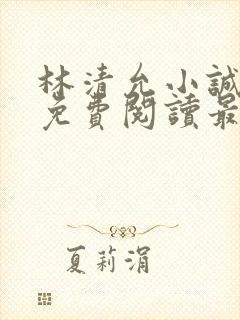 林清允小誠
免費閱讀最
夏莉涓